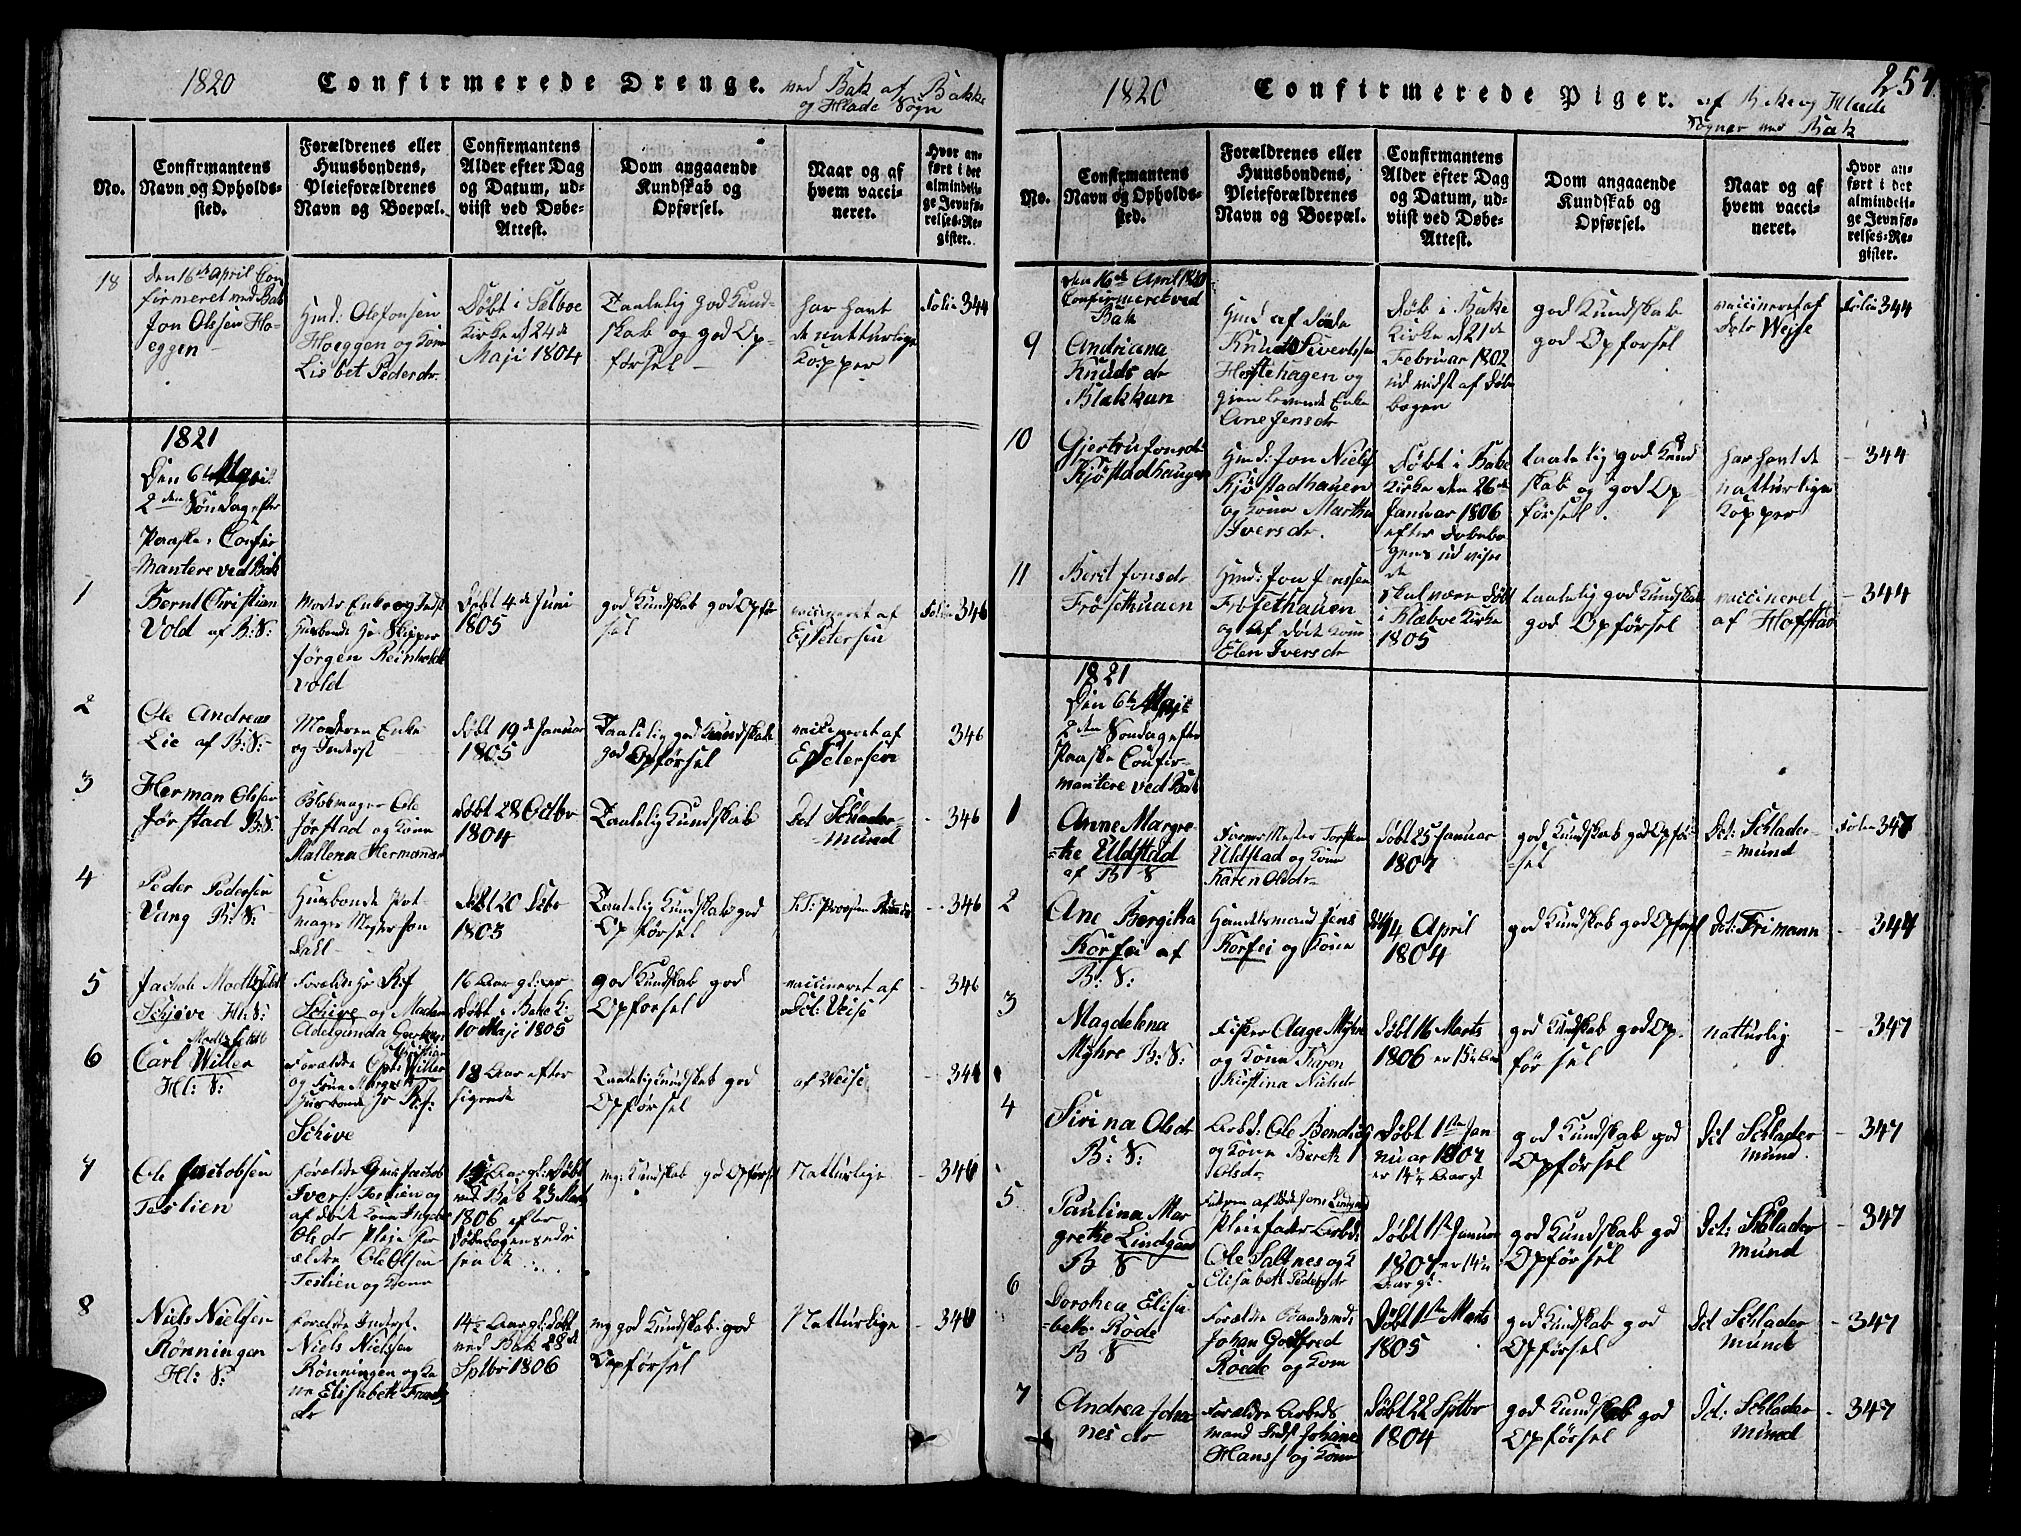 1820 Confirmerede Drenge. ved Bak af Bakke
og Hlade Sogn
No.
Confirmantens
Navn og Opholds-
sted.
Forældrenes eller
Huusbondens,
Pleieforældrenes
Navn og Boepæl.
Confirmantens
Alder efter Dag
og Datum, ud-
viist ved Døbe-
Attest.
Dom angaaende
Kundskab og
Opførsel.
Naar og af
hvem vacci-
neret.
Hvor an-
ført i det
almindeli-
ge Jevnfø-
relses-Re-
gister.
18
Den 16de April Con
firmeret ved Bak
Jon Olssen Ho-
eggen
Huusd: Ole Jonsen
Hoeggen og Kone
Lisbet Pedersdr.
Døbt i Selboe
Kirke d 24de
Maji 1804
Taalelig god Kund-
skab og god Op-
førsel -
har havt
de natturlige
Kopper
Folio 344
1821
Den 6te Maji
2den Søndag efter
Paaske. Confir
mantere ved Bak
1
Bernt Christian
Vold af B: S:
Moder Enke og Inderst
Huusbonde Hr Skipper
Jørgen Reinholdt
Vold
Døbt 4de Juni
1805
god Kundskab god Opfør
sel
vaccineret af
E Petersen
Folio 346
2
Ole Andreas
Lie af B: S:
Moderen Enke
og Inderst
døbt 19de Januar
1805
Taalelig god Kundskab
god Opførsel
vaccineret af
E Petersen
346
3
Herman Olsen
Jørstad B: S:
Blokmager Ole
Jørstad og Kone
Mallena Hermansdr
døbt 28 Octbr
1804
Taalelig Kundskab
Det Schlader-
mund
346
4
Peder Pedersen
Vang B: S:
Huusbonde Pot
mager Meyer Jon
Dahl
Døbt 20 Debr
1803
Taalelig Kundskab god
Opførsel
346
5
Jacob
Schjøve Hl: S:
Forældre Hr Kif
Schive og Madam
Adelgunda
16 Aar gl: er
Døbt i Bake K:
10 Maji 1805
god Kundskab god
Opførsel
vaccineret af
Det: Veise
346
6
Carl Willer
Hl: S:
Forældre Cpt: Willer
og Frue
Huusbonde Hr Kif:
Schive
18 Aar efter
sigende
Taalelig Kundskab god
Opførsel
af Weise
346
7
Ole Jacobsen
Teslien
forældre Huus Jacob
Ivers: Teslien og
af døde Kone Ingbr
Olsdr Pleje for
ældre Ole Olsen
Teslien og Kone
15 Aar gl: Døbt
ved Bak 23 Marts
1806 efter
Døbebogens udvi
sende
mg: Kundskab god Opførsel
Natturlige
346
8
Niels Nielsen
Rønningen
Hl: S:
Forældre Inderst
Niels Nielssen
Rønningen og Ko
ne Elisabeth Frands
dr
14½ Aar gl: døbt
ved Bak 28de
Sptbr 1806
mg god Kundskab god
Opførsel
Natturlige
346
1820 Confirmerede Piger. af Bake og Hlade
Sogner ved Bak
254
No.
Confirmantens
Navn og Opholds-
sted.
Forældrenes eller
Huusbondens,
Pleieforældrenes
Navn og Boepæl.
Confirmantens
Alder efter Dag
og Datum, ud-
viist ved Døbe-
Attest.
Dom angaaende
Kundskab og
Opførsel.
Naar og af
hvem vacci-
neret.
Hvor an-
ført i det
almindeli-
ge Jevnfø-
relses-Re-
gister.
Den 16de April 1820
Confirmeret ved
Bak
9
Andriana
Knudsdr
Blakkun
Huusd af døde
Knud Sivertssen
Hestehagen og
gien levende Enke
Ane Jensdr
Døbt i Bake
Kirke d 21de
Februar 1802
ud vidst af døbe
bogen
god Kundskab
god Opførsel
vaccineret af
Det Weise
Folio 344
10
Gjertru Jonsdr
Kjøstadhaugen
Huusd: Jon Niels
Kjøstadhauen
og Kone Martha
Iversdr.
Døbt i Bake
Kirke den 26de
Januar 1806
efter døbebo
gens ud visen
de
taalelig god Kund
skab og god Op
førsel.
har havt de
natturlige
Kopper
- 344
11
Berit Jonsdr
Frøsethuaen
Huusd: Jon Jenssen
Frøsethauen
og af døde Kone
Elen Iversdr
skal være døbt
i Klæboe Kirke
1805
taalelig god Kundskab
god Opførsel
vaccineret
af Hofstad
- 344
1821
Den 6te Maji
2den Søndag efter
Paaske Confir-
mantere ved Bak
1
Anne Margre-
the Uldstad
af B S
Farver Mester Torsten
Uldstad og Kone
Karen Olsdr
Døbt 25 Januar
1807
god Kundskab god Opfør
sel
Det: Schlader-
mund
Folio 347
2
Ane Bergitha
Korfei af
B: S:
Handelsmand Jens
Korfei og Kone
4 April
1804
god Kundskab god Opførsel
Det: Frimann
- 347
3
Magdelena
Myhre B: S:
Fisker Aage Myhre
og Kone Karen
Kirstina Nielsdr
døbt 16 Marts
1806 er 15¼ Aar
god Kundskab god Op-
førsel
natturlig
347
4
Sirina Olsdr
B: S:
Arbd: Ole Bendix
og Kone Bereth
Olsdr
Døbt 1ste Jan
nuar 1807
er 14¼ Aar gl
god Kundskab god
Opførsel
Det Schlader
mund
- 347
5
Paulina Mar
grethe Lindgaard
B S
Pleiefader Arbd:
Ole Saltnes og K
Elisabeth Pedersdr
Døbt 1ste Januar
1807 er 14¼
Aar gl:
god Kundskab god
Opførsel
Det: Schlader
mund
- 347
6
Dorothea Elisa
beth Rode
B S
Forældre
Johan Gotfred
Roede og Kone
Døbt 1ste Marts
1805
god Kundskab god
Opførsel
Det Schlader
mund
- 347
7
Andrea Johan
nesdr
Forældre Arbeds
mand Inds Johanes
Hanss og Kone
Døbt 22 Sptbr
1804
god Kundskab god
Opførsel
Det: Schlader
mund
- 347